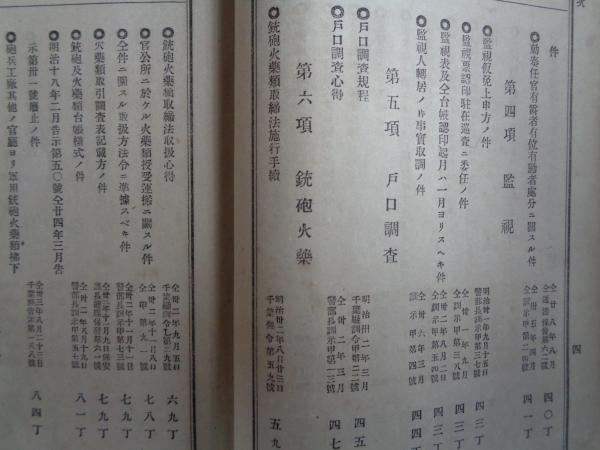 件
◎勳奏任官有爵者有位有勳者處分ニ關スル件
四〇丁
第四項 監視
四一丁
◎監視假免上申方ノ件
明治卅一年九月十五日
警部長訓示甲第三七號
四三丁
◎監視票認印駐在巡査ニ委任ノ件
四三丁
◎監視表及仝台帳認印起月ハ一月ヨリスヘキ件
四三丁
◎監視人轉居ノ片事實取調ノ件
仝卅六年三月
訓示甲第四號
四四丁
第五項 戸口調査
◎戸口調査規程
明治卅二年三月
千葉縣訓令甲第二二號
四五
◎戸口調査心得
仝卅二年三月
警部長訓示甲第一三號
四七
第六項 銃砲火藥
◎銃砲火藥類取締法施行手續
明治卅二年八月廿三日
千葉縣令第五九號
五九
四
銃砲火藥類取締法取扱心得
仝卅二年九月五日
六九丁
◎官公所ニ於ケル火藥類授受運搬ニ關スル件
仝卅二年十一月八日
七八丁
◎仝件ニ關スル取扱方法令ニ準據スベキ件
仝卅二年十一月十一日
警部長訓示甲第七三號
七九丁
◎火藥類取引調査表記載方ノ件
七九丁
◎銃砲及火藥類台帳樣式ノ件
八一丁
◎明治十八年二月告示第五〇號仝廿四年三月告
示第卅一號廢止ノ件
仝卅三年八月二十三日
八四丁
◎砲兵工廠其他ノ官廳ヨリ軍用銃砲火藥類拂下